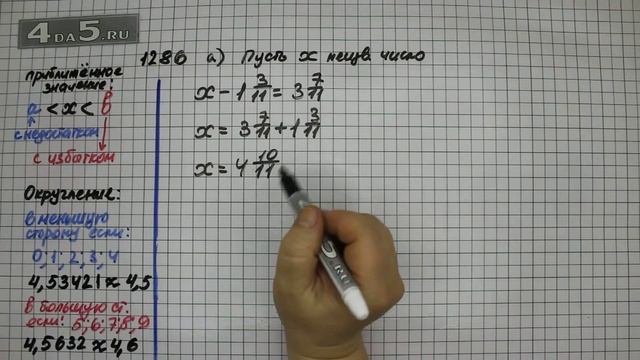 4DA5.RU
1286 а) Пусть x неизв число
приближённое
значение:
a < x < b
с недостатком
с избытком
Округление:
в меньшую
сторону если:
0; 1; 2; 3; 4
4,53421 ≈ 4,5
в большую ст.
если: 5; 6; 7; 8; 9
4,5632 ≈ 4,6
x - 1 3/11 = 3 7/11
x = 3 7/11 + 1 3/11
x = 4 10/11
.RU